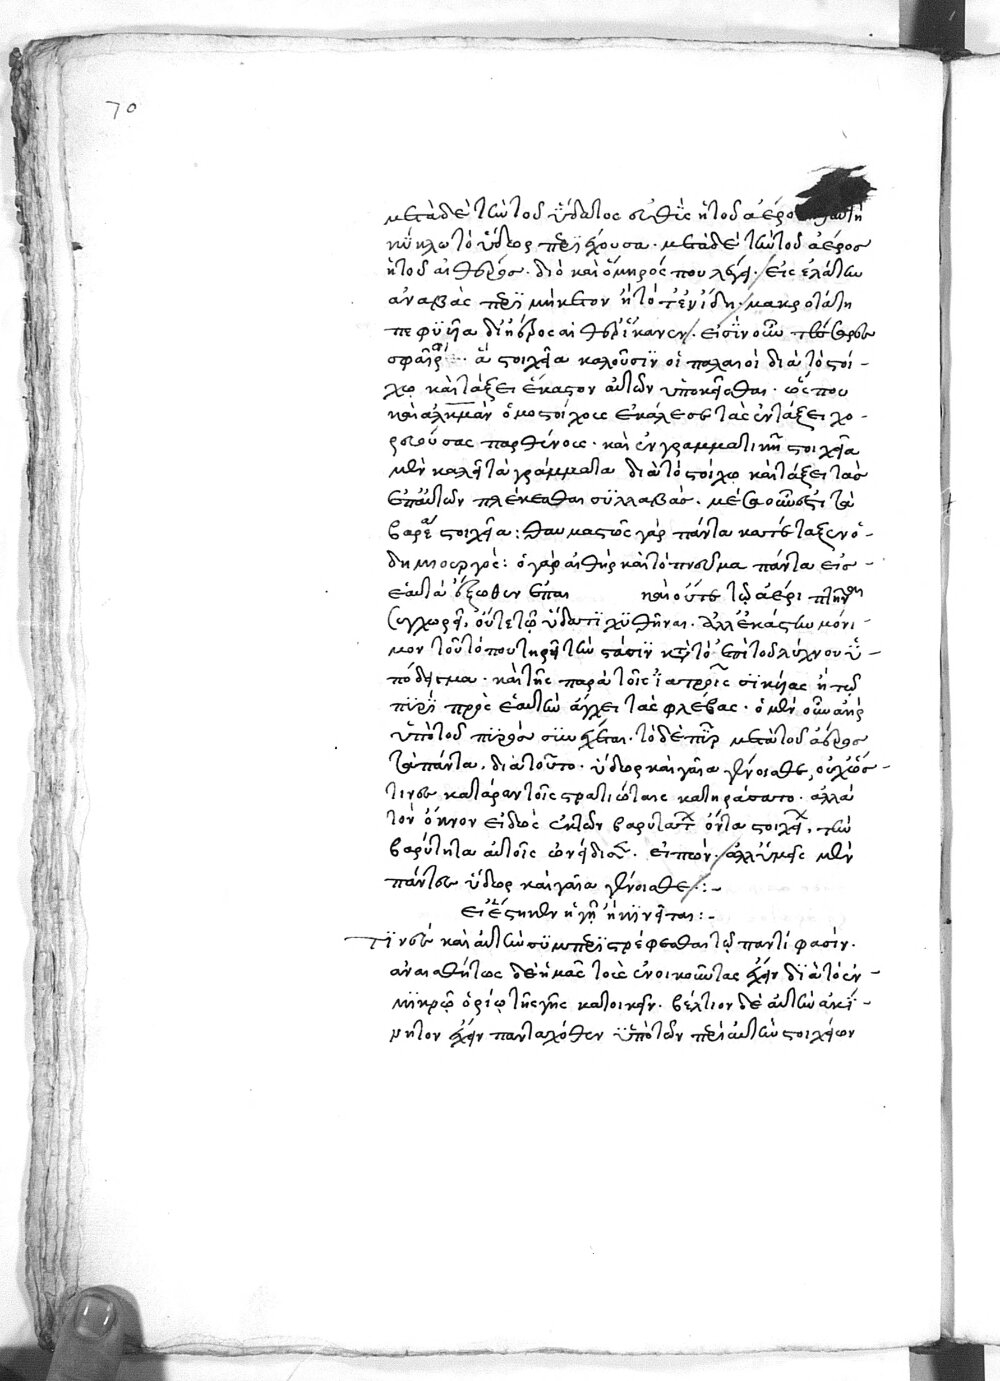 70
μετὰ δὲ τὴν τοῦ ὕδατος εὐθὺς ἡ τοῦ ἀέρος αὕτη
κύκλω τὸ ὕδωρ περιέχουσα· μετὰ δὲ τὴν τοῦ ἀέρος
ἡ τοῦ αἰθέρος· διὸ καὶ ὅμηρός που λέγει· εἰς ἐλάτην
ἀναβὰς περιμήκετον ἣ τότ' ἐν ἴδῃ· μακροτάτη
πεφυυῖα δι' ἠέρος αἰθέρ' ἵκανεν· εἰσὶν οὖν τέσσαρες
σφαῖραι ἃ στοιχεῖα καλοῦσιν οἱ παλαιοὶ διὰ τὸ στοί-
χῳ καὶ τάξει ἕκαστον αὐτῶν ὑποκεῖσθαι· ὥς που
καὶ ἀλκμὰν ὁμοστοίχους ἐκάλεσε τὰς ἐν τάξει χο-
ρευούσας παρθένους· καὶ ἐν γραμματικῇ στοιχεῖα
μὲν καλεῖ τὰ γράμματα διὰ τὸ στοίχῳ καὶ τάξει τὰς
ἐπ' αὐτῶν πλέκεσθαι συλλαβάς·
βαρέα στοιχεῖα: θαυμαστῶς γὰρ πάντα κατέταξεν ὁ
δημιουργός: ὁ γὰρ αἰθὴρ καὶ τὸ πνεῦμα πάντα εἰς
ἑαυτὰ ἔξωθεν ἐπαι καὶ οὔτε τῷ ἀέρι
συγχωρεῖ, οὔτε τῷ ὕδατι χυθῆναι· ἀλλ' ἑκάστω μόνι-
μον τοῦτο που τηρεῖ τὴν στάσιν κατὰ τὸ ἐπὶ τοῦ λύχνου ὑ-
πόδειγμα· καὶ τῆς παρὰ τοῖς ἰατροῖς σικύας ἣ τῷ
πυρὶ πρὸς ἑαυτὴν ἄγχει τὰς φλέβας· ὁ μὲν οὖν ἀὴρ
ὑπὸ τοῦ πυρὸς συνέχεται· τὸ δὲ πῦρ μετὰ τοῦ ἀέρος
τὰ πάντα. διὰ τοῦτο· ὕδωρ καὶ γαῖα γένοισθε, οὐχ ὥς
τινες κατάραν τοῖς στρατιώταις κατηράσατο· ἀλλὰ
τὸν ὄκνον εἰδὼς ἐκ τῶν βαρυτάτων ὄντα στοιχείων, τὴν
βαρύτητα αὐτοῖς ὠνείδισεν· εἰπών· ἀλλ' ὑμεῖς μὲν
πάντες ὕδωρ καὶ γαῖα γένοισθε·:-
εἰ ἕστηκεν ἡ γῆ ἢ κινεῖται:-
Τινὲς καὶ αὐτὴν συμπεριστρέφεσθαι τῷ παντί φασιν·
ἀναισθήτως δὲ ἡμᾶς τοὺς ἐνοικοῦντας ἔχειν διὰ τὸ ἐν
μικρῷ ὁρίῳ τῆς γῆς κατοικεῖν· βέλτιον δὲ αὐτὴν ἀκί-
νητον ἔχειν πανταχόθεν ὑπὸ τῶν περὶ αὐτὴν στοιχείων